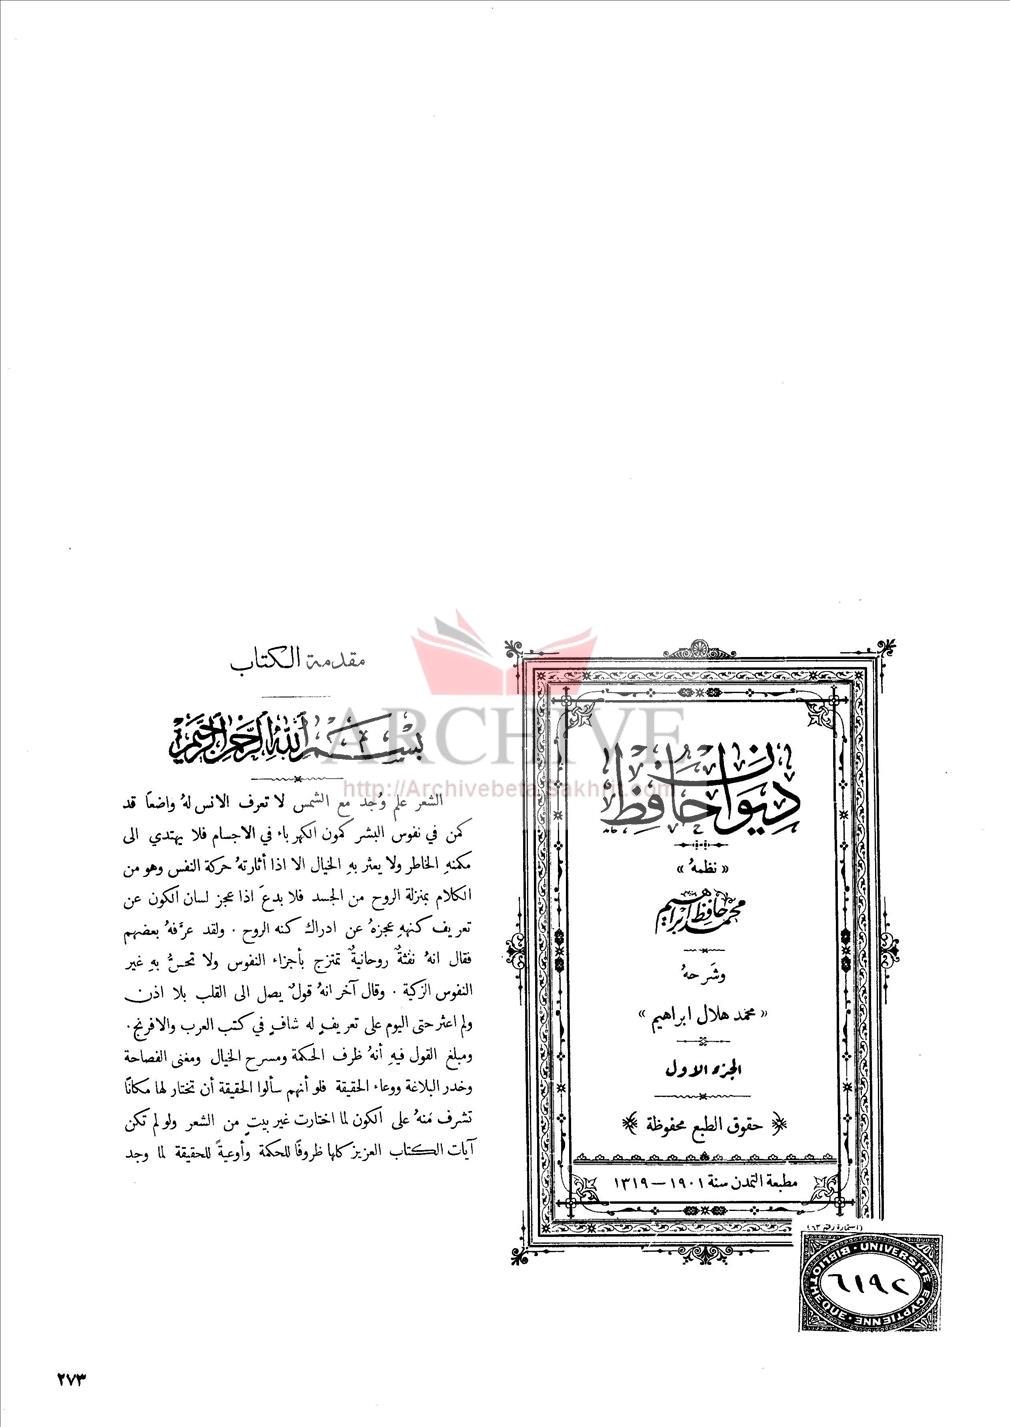 ديوان حافظ
« نظمهُ »
محمد حافظ ابراهيم
وشَرحهُ
« محمد هلال ابراهيم »
الجزء الاول
حقوق الطبع محفوظة
مطبعة التمدن سنة ١٩٠١ – ١٣١٩
(استمارة رقم ٦٣)
BIBLIOTHEQUE · UNIVERSITE EGYPTIENNE
٦١٩٢
مقدمة الكتاب
بسم الله الرحمن الرحيم
الشعر علم وُجد مع الشمس لا تعرف الانس لهُ واضعاً قد
كمن في نفوس البشر كمون الكهرباء في الاجسام فلا يهتدي الى
مكمنهِ الخاطر ولا يعثر بهِ الخيال الا اذا أثارتهُ حركة النفس وهو من
الكلام بمنزلة الروح من الجسد فلا بدعَ اذا عجز لسان الكون عن
تعريف كنههِ عجزهُ عن ادراك كنه الروح . ولقد عرَّفهُ بعضهم
فقال انهُ نفثةٌ روحانيةٌ تمتزج بأجزاء النفوس ولا تحسُّ بهِ غير
النفوس الزكية . وقال آخر انهُ قولٌ يصل الى القلب بلا اذن
ولم اعثر حتى اليوم على تعريفٍ له شافٍ في كتب العرب والافرنج .
ومبلغ القول فيهِ أنهُ ظرف الحكمة ومسرح الخيال ومغنى الفصاحة
وخدر البلاغة ووعاء الحقيقة فلو أنهم سألوا الحقيقة أن تختار لها مكاناً
تشرف منهُ على الكون لما اختارت غير بيتٍ من الشعر ولو لم تكن
آيات الكتاب العزيز كلها ظروفاً للحكمة وأوعيةً للحقيقة لما وجد
ARCHIVE
http://Archivebeta.Sakhrit.com
٢٧٣